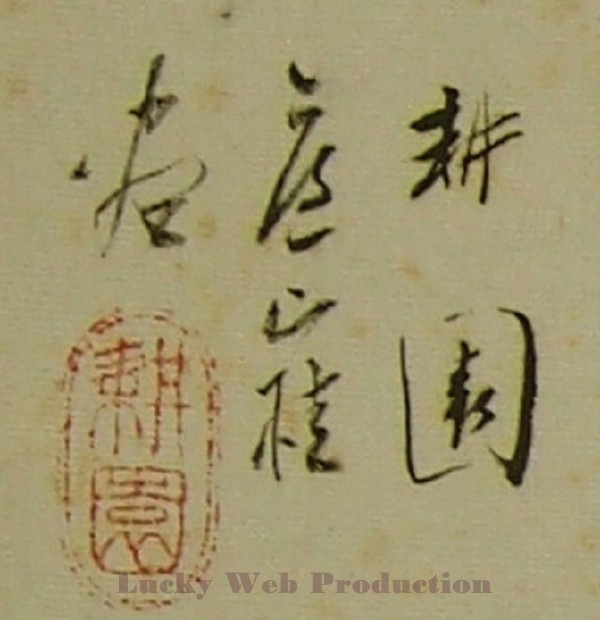 耕園
山桂
耕園
Lucky Web Production